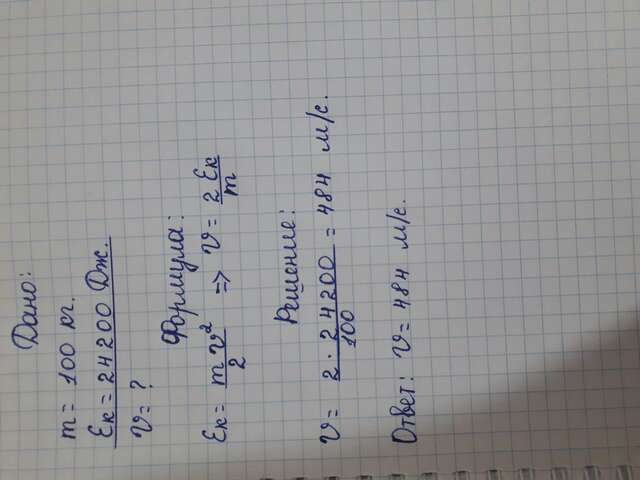 Дано:
m = 100 кг.
Eк = 24200 Дж.
v = ?
Формула:
Eк = mv²/2 => v = 2Eк/m
Решение:
v = 2·24200/100 = 484 м/с.
Ответ: v = 484 м/с.